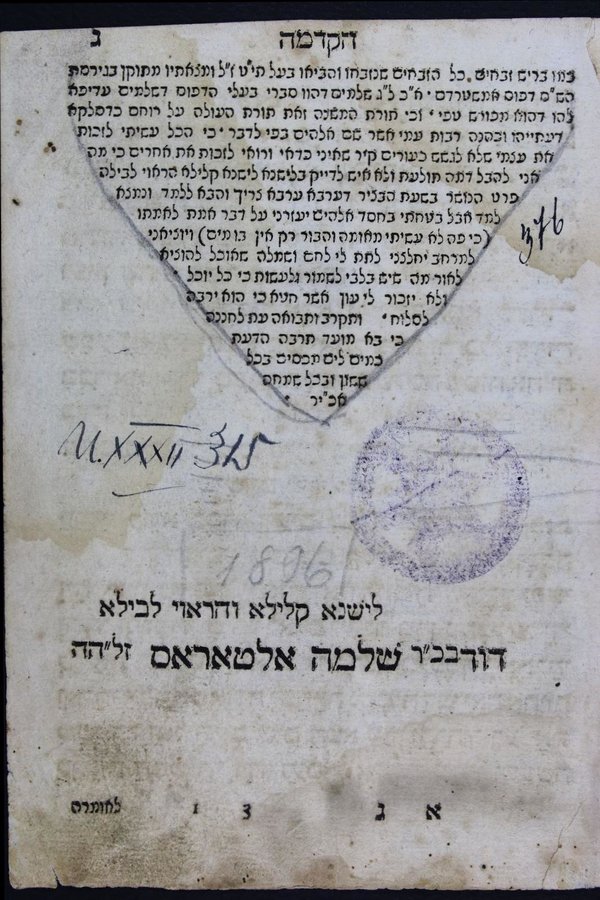 ג הקדמה
כמו בריש זבחים כל הזבחים שנזבחו והביאו בעל תי"ט ז"ל ומצאתיו מתוקן בגירסת
הש"ס דפוס אמשטרדם א"כ ל"ג שלמים דהוו סברי בעלי הדפוס דשלמים עדיפא
להו דהוא מפורש טפי וכי תורת המשנה זאת תורת העולה על רוחם כדסלקא
דעתייהו ובהנה רבות עמי אשר שם אלהים בפי לדבר כי הכל עשיתי לזכות
את עצמי שלא לגשש כעורים קיר שאיני כדאי וראוי לזכות את אחרים כי מה
אני להבל דמה תולעת ולא איש לדייק בלישנא לישנא קלילא הראוי לבילה
פרט הנושר בשעת הבציר דערבא ערבא צריך והבא ללמד ונמצא
למד אבל בטחתי בחסד אלהים יעזרני על דבר אמת לאמתו
(כי פה לא עשיתי מאומה והבור רק אין בו מים) ויוציאני
למרחב יחלצני לתת לי לחם ושמלה שאוכל להוציא
לאור מה שיש בלבי לשמור ולעשות כי כל יוכל
ולא יזכור לי עון אשר חטא כי הוא ירבה
לסלוח ותקרב ותבואה עת לחננה
כי בא מועד תרבה הדעת
כמים לים מכסים בכל
ששון ובכל שמחם
אכי"ר
376
U. XXXII 315
1896
לישנא קלילא והראוי לבילא
דוד בכ"ר שלמה אלטאראס זל"הה
א ג 3 1 לאומרם